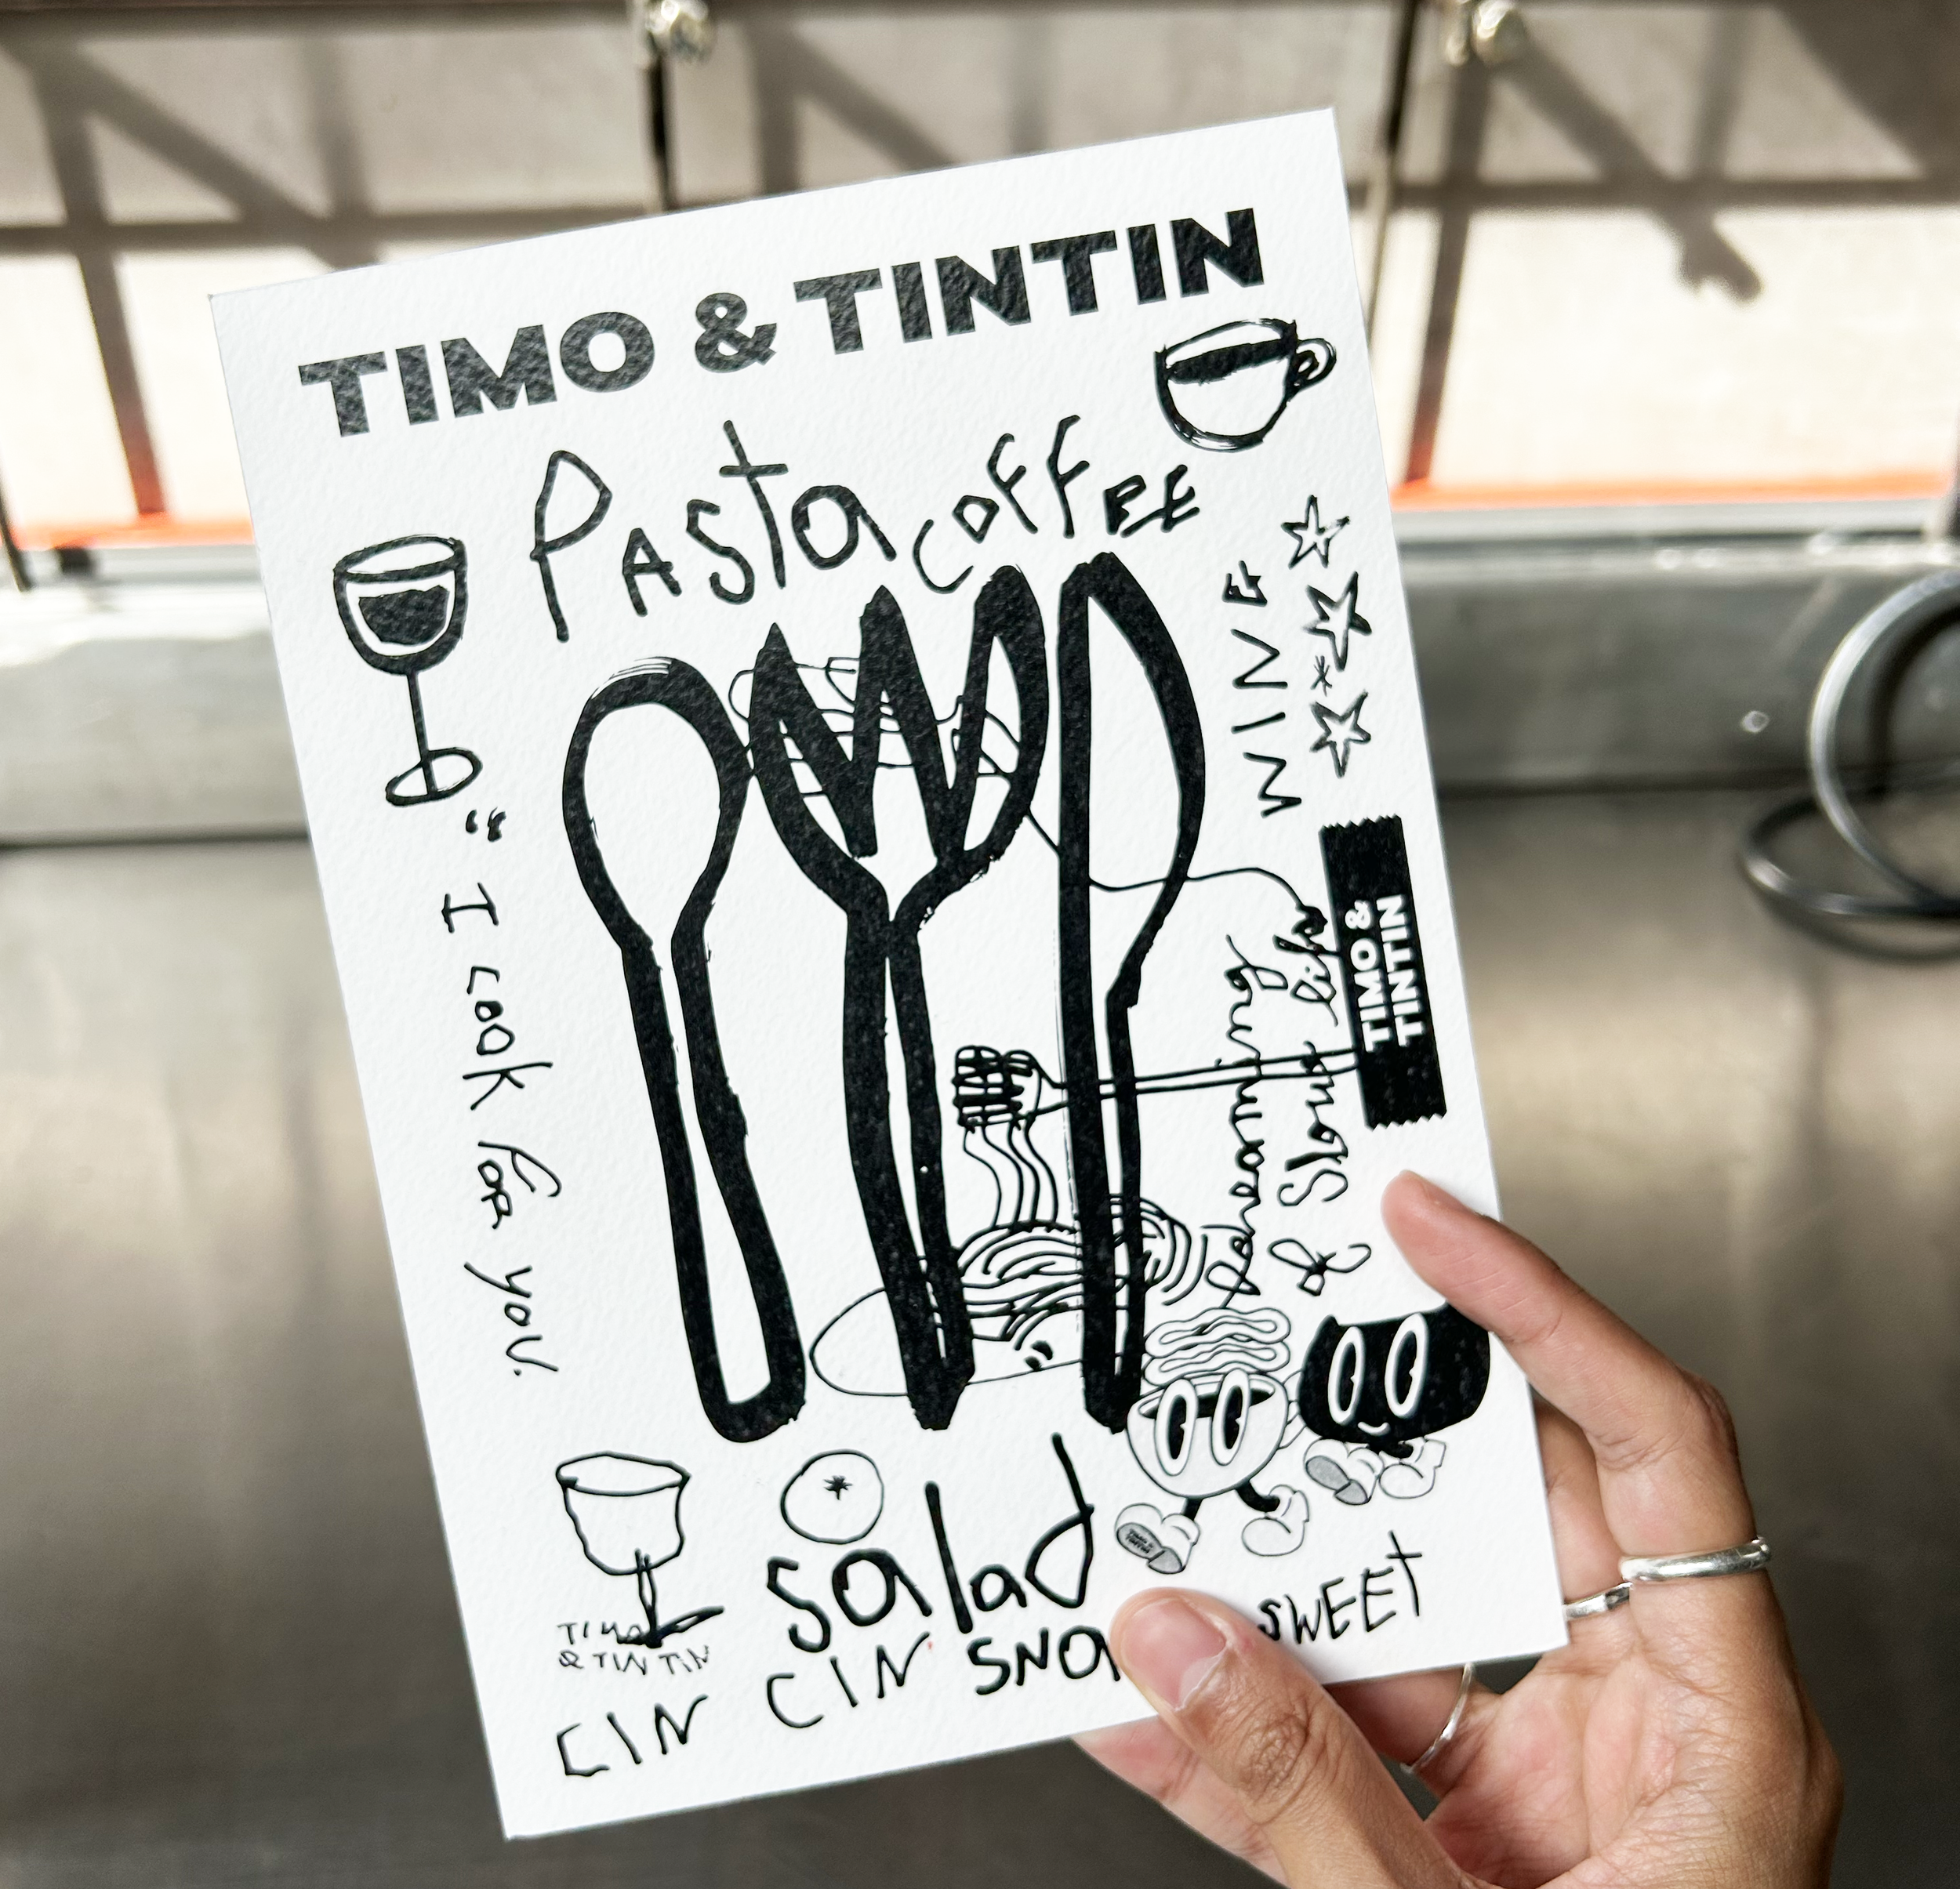 TIMO & TINTIN
Pasta COFFEE
WINE
" I cook for you.
"
Dreaming
of Slow life
TIMO &
TINTIN
salad
TIMO
& TINTIN
CIN CIN
SWEET